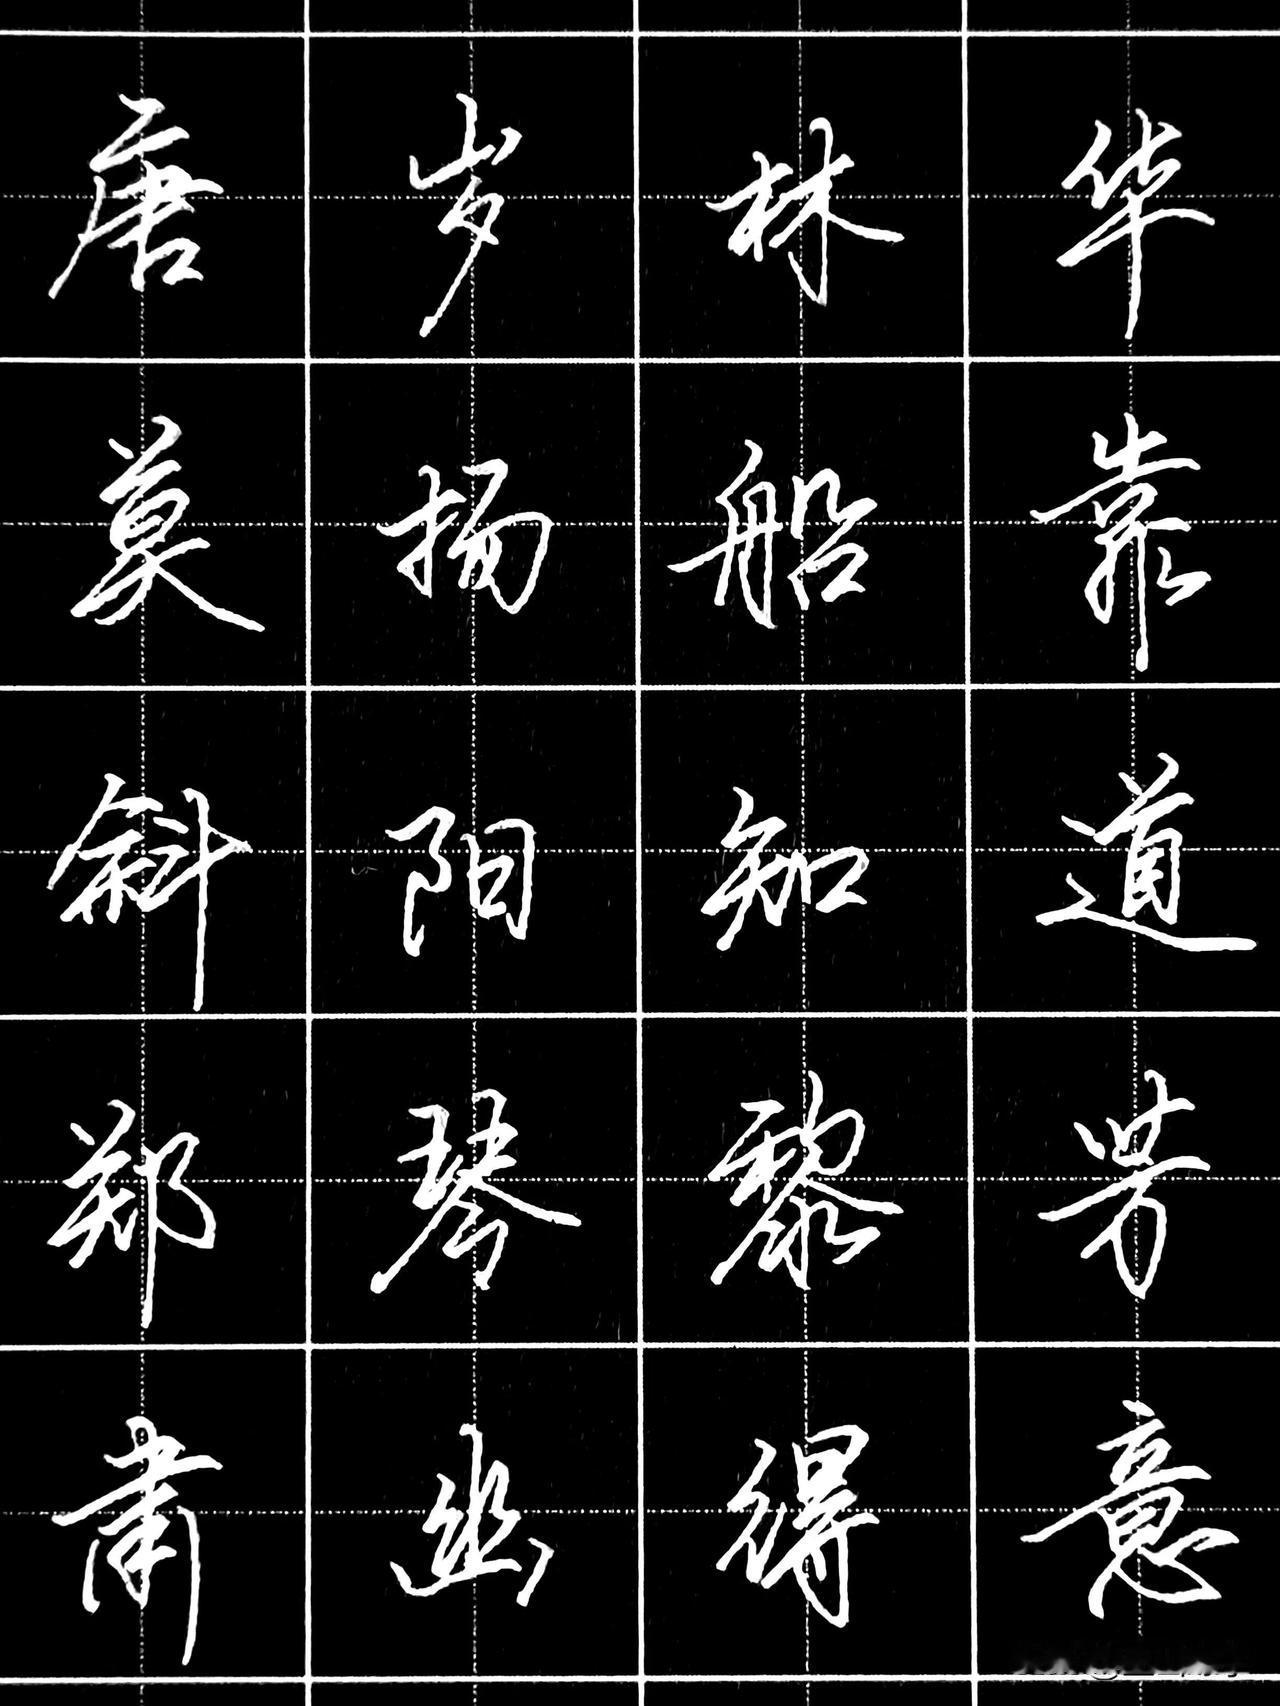 唐岁林华
莫扬船靠
斜阳知道
郑琴黎芳
肃幽得意